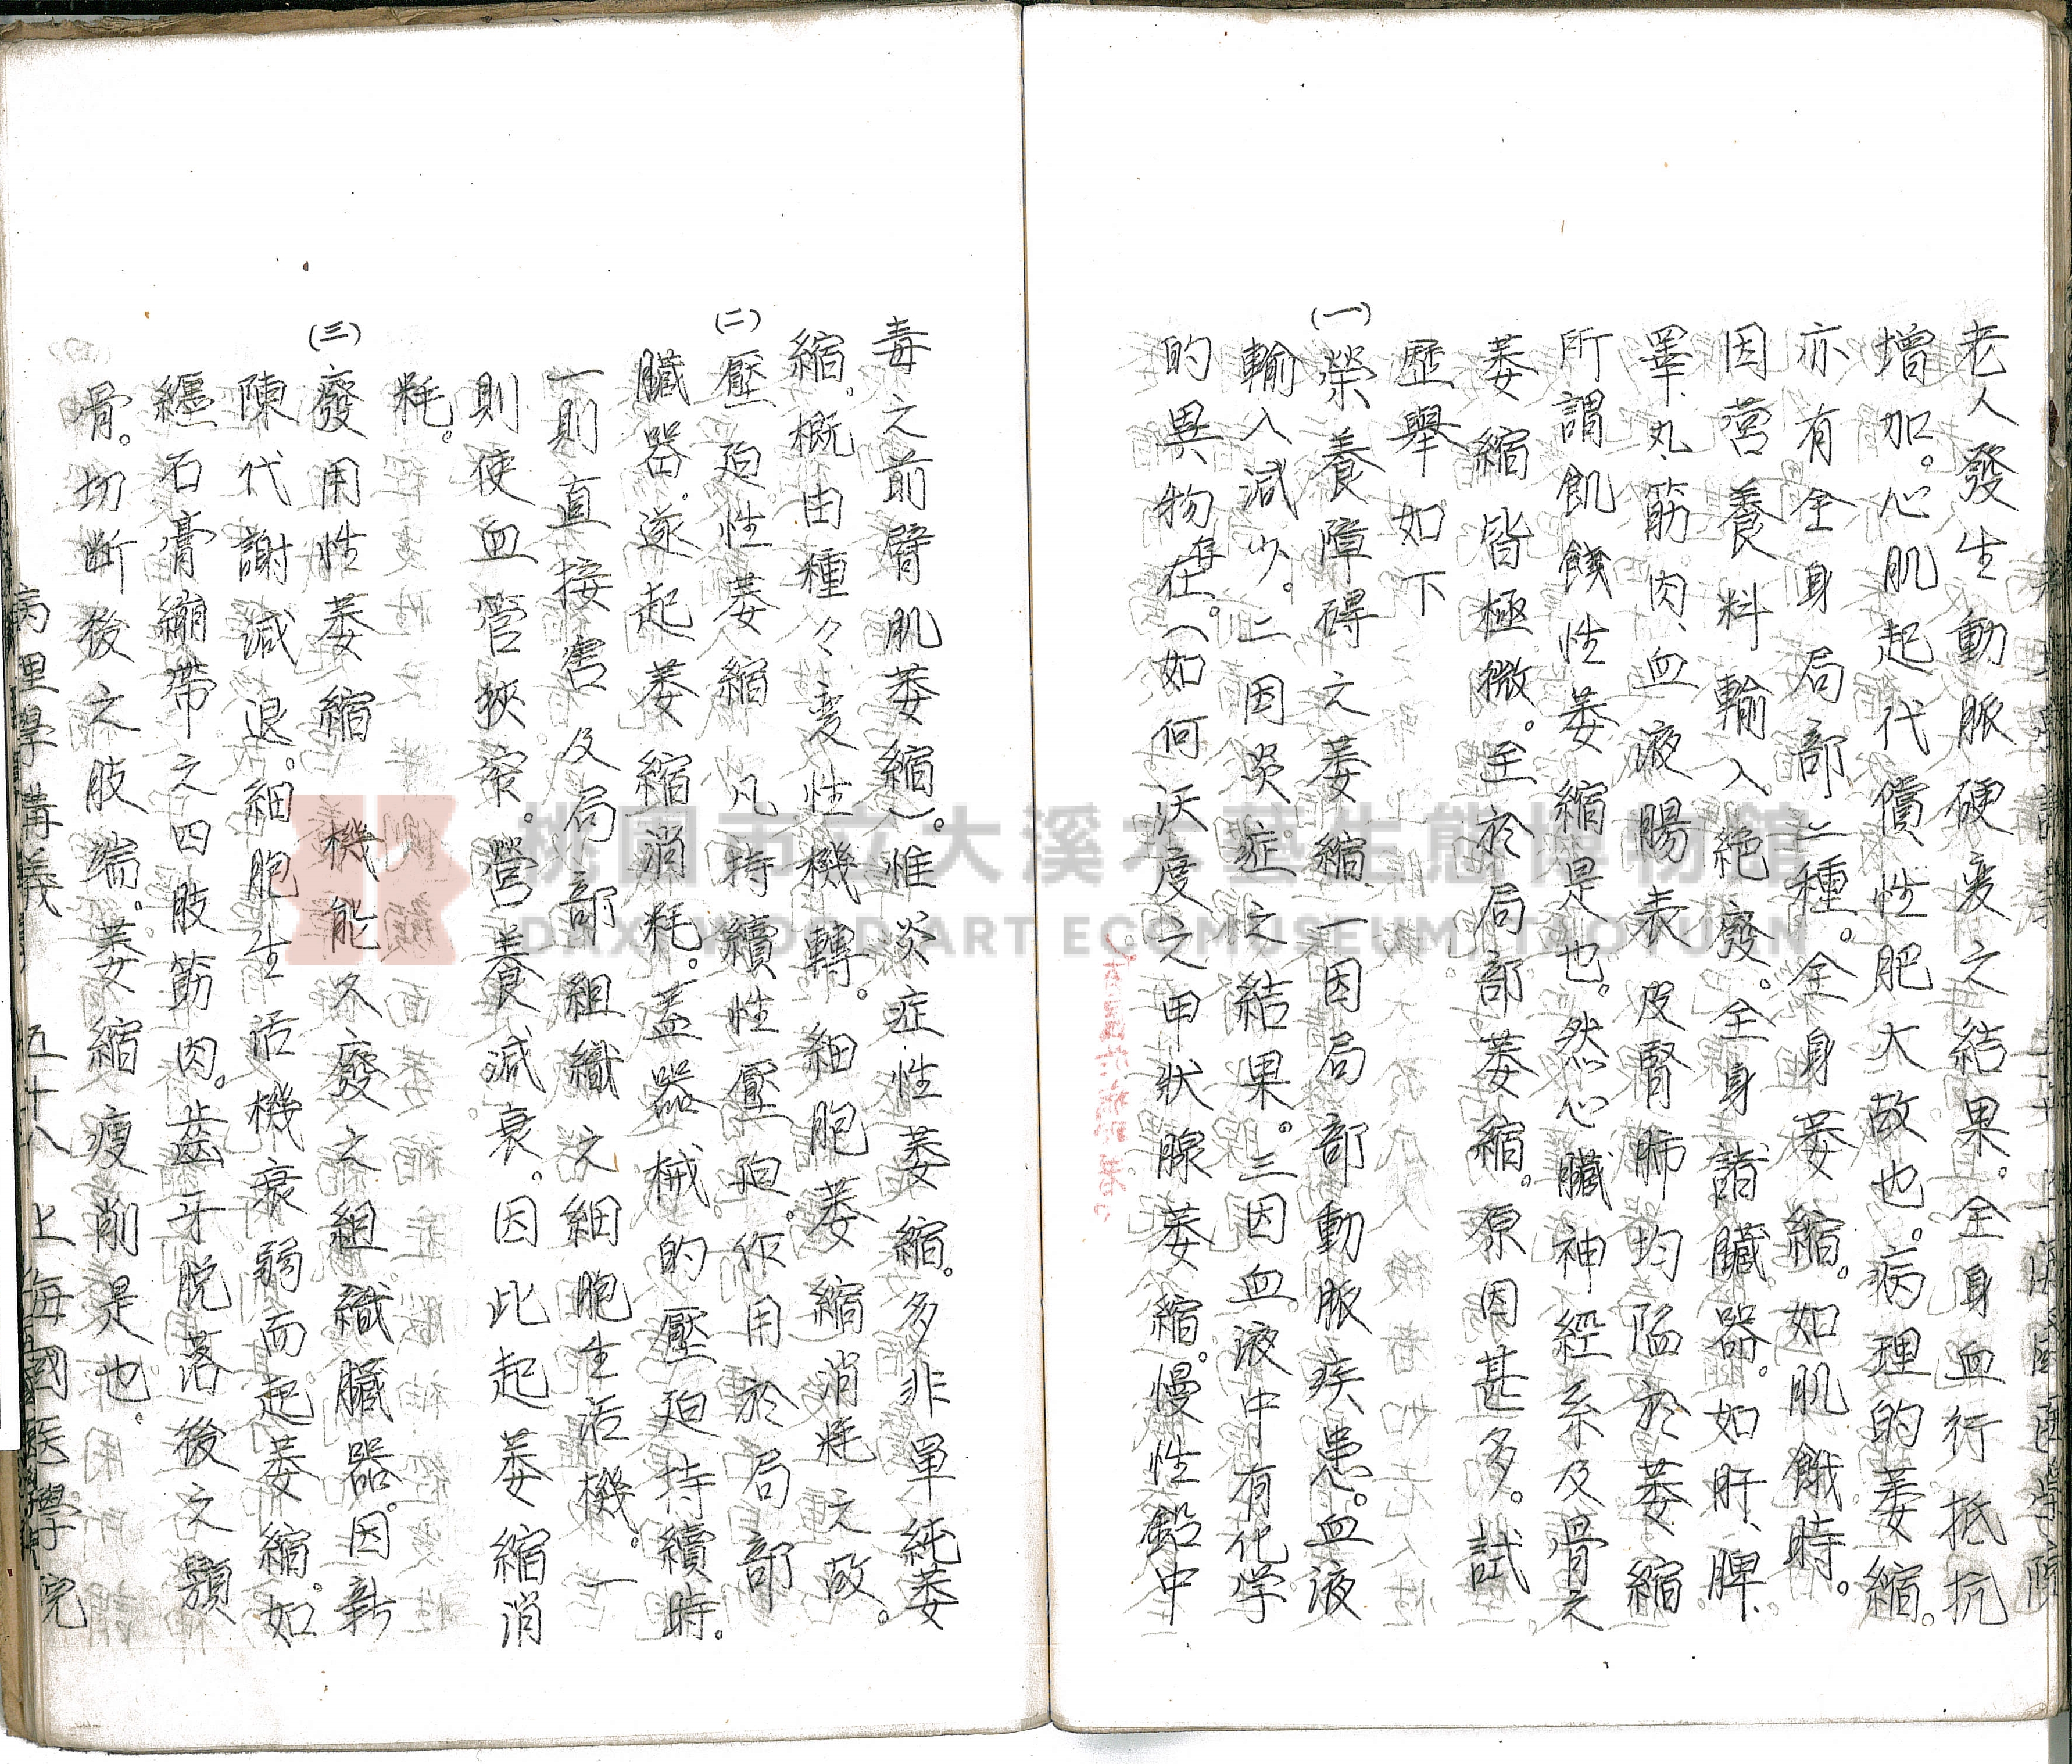 老人發生動脈硬変之結果。全身血行抵抗
增加。心肌起代償性肥大故也。病理的萎縮。
亦有全身局部二種。全身萎縮。如肌餓時。
因营養料輸入絕廢。全身諸臟器。如肝、脾、
睪丸、筋肉、血液腸表皮腎肺均陷於萎縮
所謂飢餓性萎縮是也。然心臟神經系及骨之
萎縮皆極微。至於局部萎縮。原因甚多。試
歷舉如下
(一)榮養障碍之萎縮、一因局部動脈疾患。血液
輸入減少。二因炎症之結果。三因血液中有化学
的異物存在。(如何沃度之甲狀腺萎縮。慢性鉛中
毒之前臂肌萎縮)。惟炎症性萎縮。多非单純萎
縮。概由種々変性機轉。細胞萎縮消耗之故。
(二)壓迫性萎縮 凡持續性壓迫。作用於局部
臟器。遂起萎縮消耗。蓋器械的壓迫持續時。
一則直接害及局部組織之細胞生活機。一
則使血管狹窄。營養減衰。因此起萎縮消
耗。
(三)廢用性萎縮 機能久廢之組織臟器。因新
陳代謝減退。細胞生活機衰弱而起萎縮。如
纏石膏繃帶之四肢筋肉。齒牙脫落後之顎
骨。切断後之肢端。萎縮瘦削是也。
病理學講義 五十八 上海國医學院
桃園市立大溪木藝生態博物館
DAXI WOOD ART ECOMUSEUM, TAOYUAN